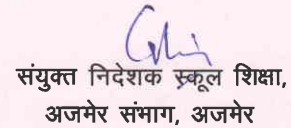 संयुक्त निदेशक स्कूल शिक्षा,
अजमेर संभाग, अजमेर